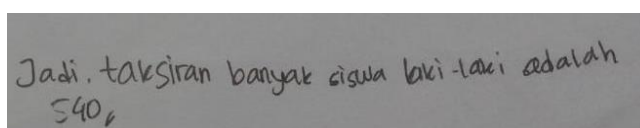 Jadi, taksiran banyak siswa laki-laki adalah
540,